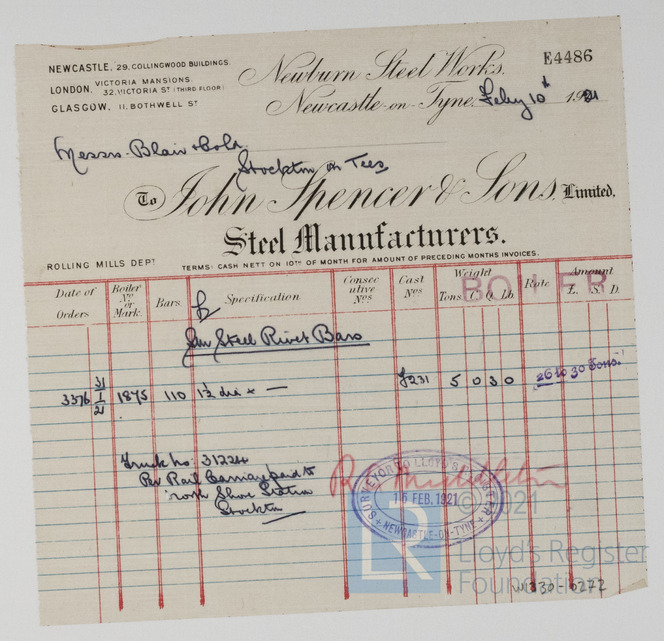 NEWCASTLE, 29. COLLINGWOOD BUILDINGS.
LONDON, VICTORIA MANSIONS, 32, VICTORIA ST (THIRD FLOOR)
GLASGOW, 11, BOTHWELL ST
E4486
Newburn Steel Works.
Newcastle-on-Tyne. Feby 10th 1921
Messrs. Blair & Co Ld
Stockton on Tees
To John Spencer & Sons, Limited,
Steel Manufacturers.
ROLLING MILLS DEPT.
TERMS: CASH NETT ON 10TH OF MONTH FOR AMOUNT OF PRECEDING MONTHS INVOICES.
BOILER
Date of Orders
Boiler No or Mark.
Bars.
Specification
Consecutive Nos
Cast Nos
Weight
Tons. C. Q. Lb.
Rate
Amount
£. S. D.
Steel Rivet Bars
3376 31/1/21 1875 110 1½ dia × — 5 0 3 0 26 to 30 Tons.
Truck No 31224
Per Rail Carriage paid to
Shore
Stockton
SURVEYOR TO LLOYD'S REGISTER
16 FEB. 1921
NEWCASTLE-ON-TYNE
LR
© 2021
Lloyd's Register
Foundation
W1330-0272